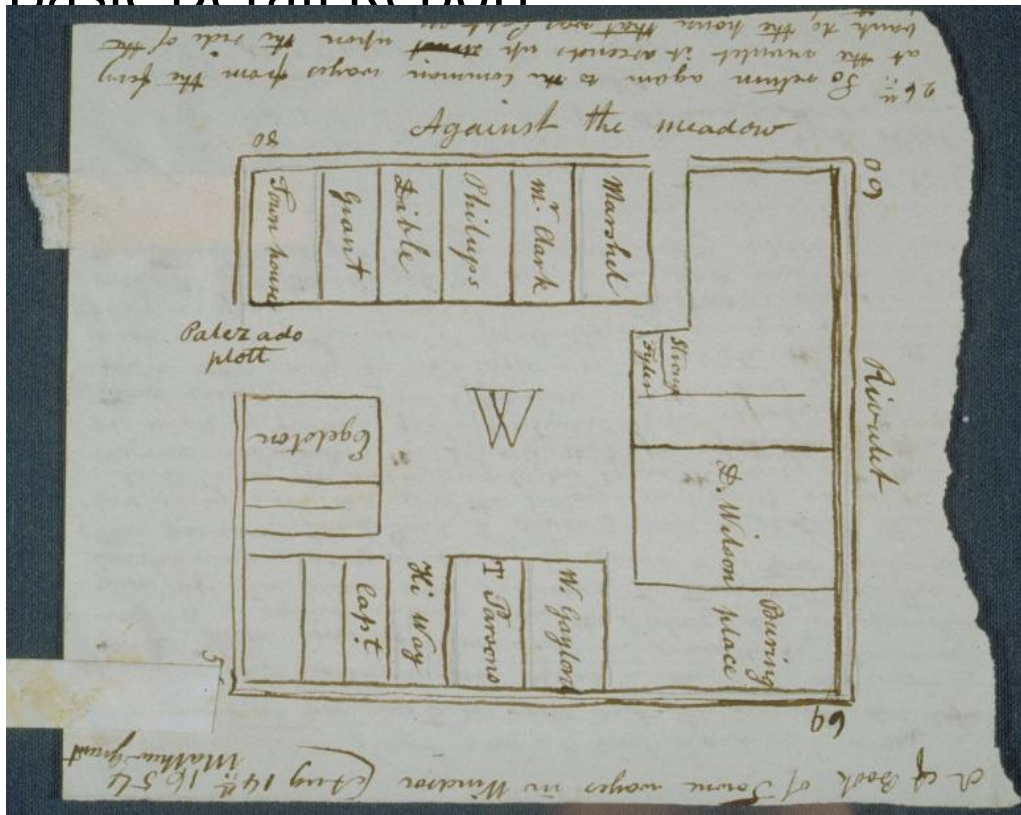 Basic Detail Report
26ly. So return again to the common wayes from the fery
at the rivulet it ascends up upon the side of the
bank to the house that was
Against the meadow
80
60
Town house
Grant
Dible
Philups
Mr. Clark
Marshel
Palezado
plott
Strong
Fyler
Rivulet
Egelston
W
D. Wilson
Capt.
Hi Way
T Parsons
W. Gaylord
Buring
place
5
69
Book of Towne wayes in Windsor (Aug 14th 1654
Mathew Grant